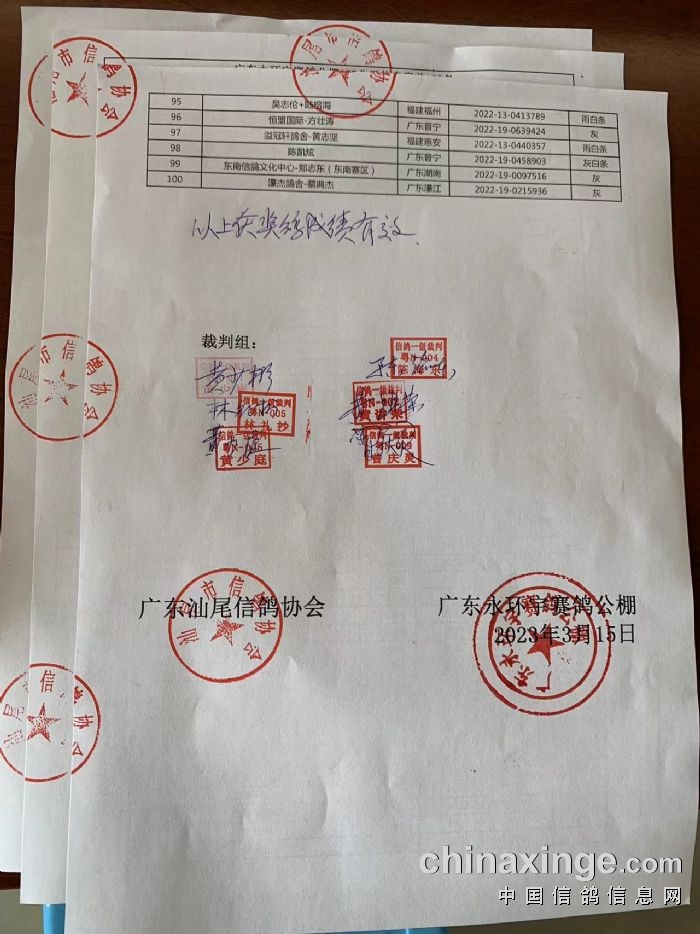 汕尾市信鸽协会
汕尾市信鸽协会
95 吴志伦+陆培海 福建福州 2022-13-0413789 雨白条
96 恒盟国际-方壮涛 广东普宁 2022-19-0639424 灰
97 溢冠轩鸽舍-黄志坚 福建惠安 2022-13-0440357 雨白条
98 陈凯炫 广东普宁 2022-19-0458903 灰白条
99 东南信鸽文化中心-郑志东(东南赛区) 广东潮南 2022-19-0097516 灰
100 灏杰鸽舍-蔡典杰 广东濠江 2022-19-0215936 灰
以上获奖鸽成绩有效.
裁判组:
信鸽一级裁判
粤N-004
陈海宗
黄少彬
信鸽一级裁判
粤N-005
林礼抄
信鸽一级裁判
信鸽一级裁判
黄少庭
信鸽一级裁判
粤N-009
曾庆灵
汕尾市信鸽协会
汕尾市信鸽协会
广东汕尾信鸽协会
广东永环宇赛鸽公棚
2023年3月15日
汕尾市信鸽协会
chinaxinge.com
中国信鸽信息网